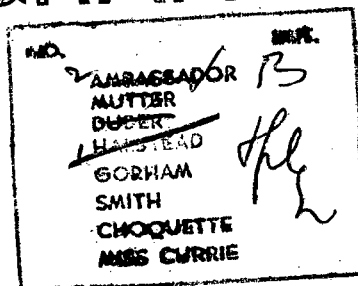 NO. INIT.
2 AMBASSADOR B
MUTTER
DUDER
1 HALSTEAD
GORHAM
SMITH
CHOQUETTE
MISS CURRIE